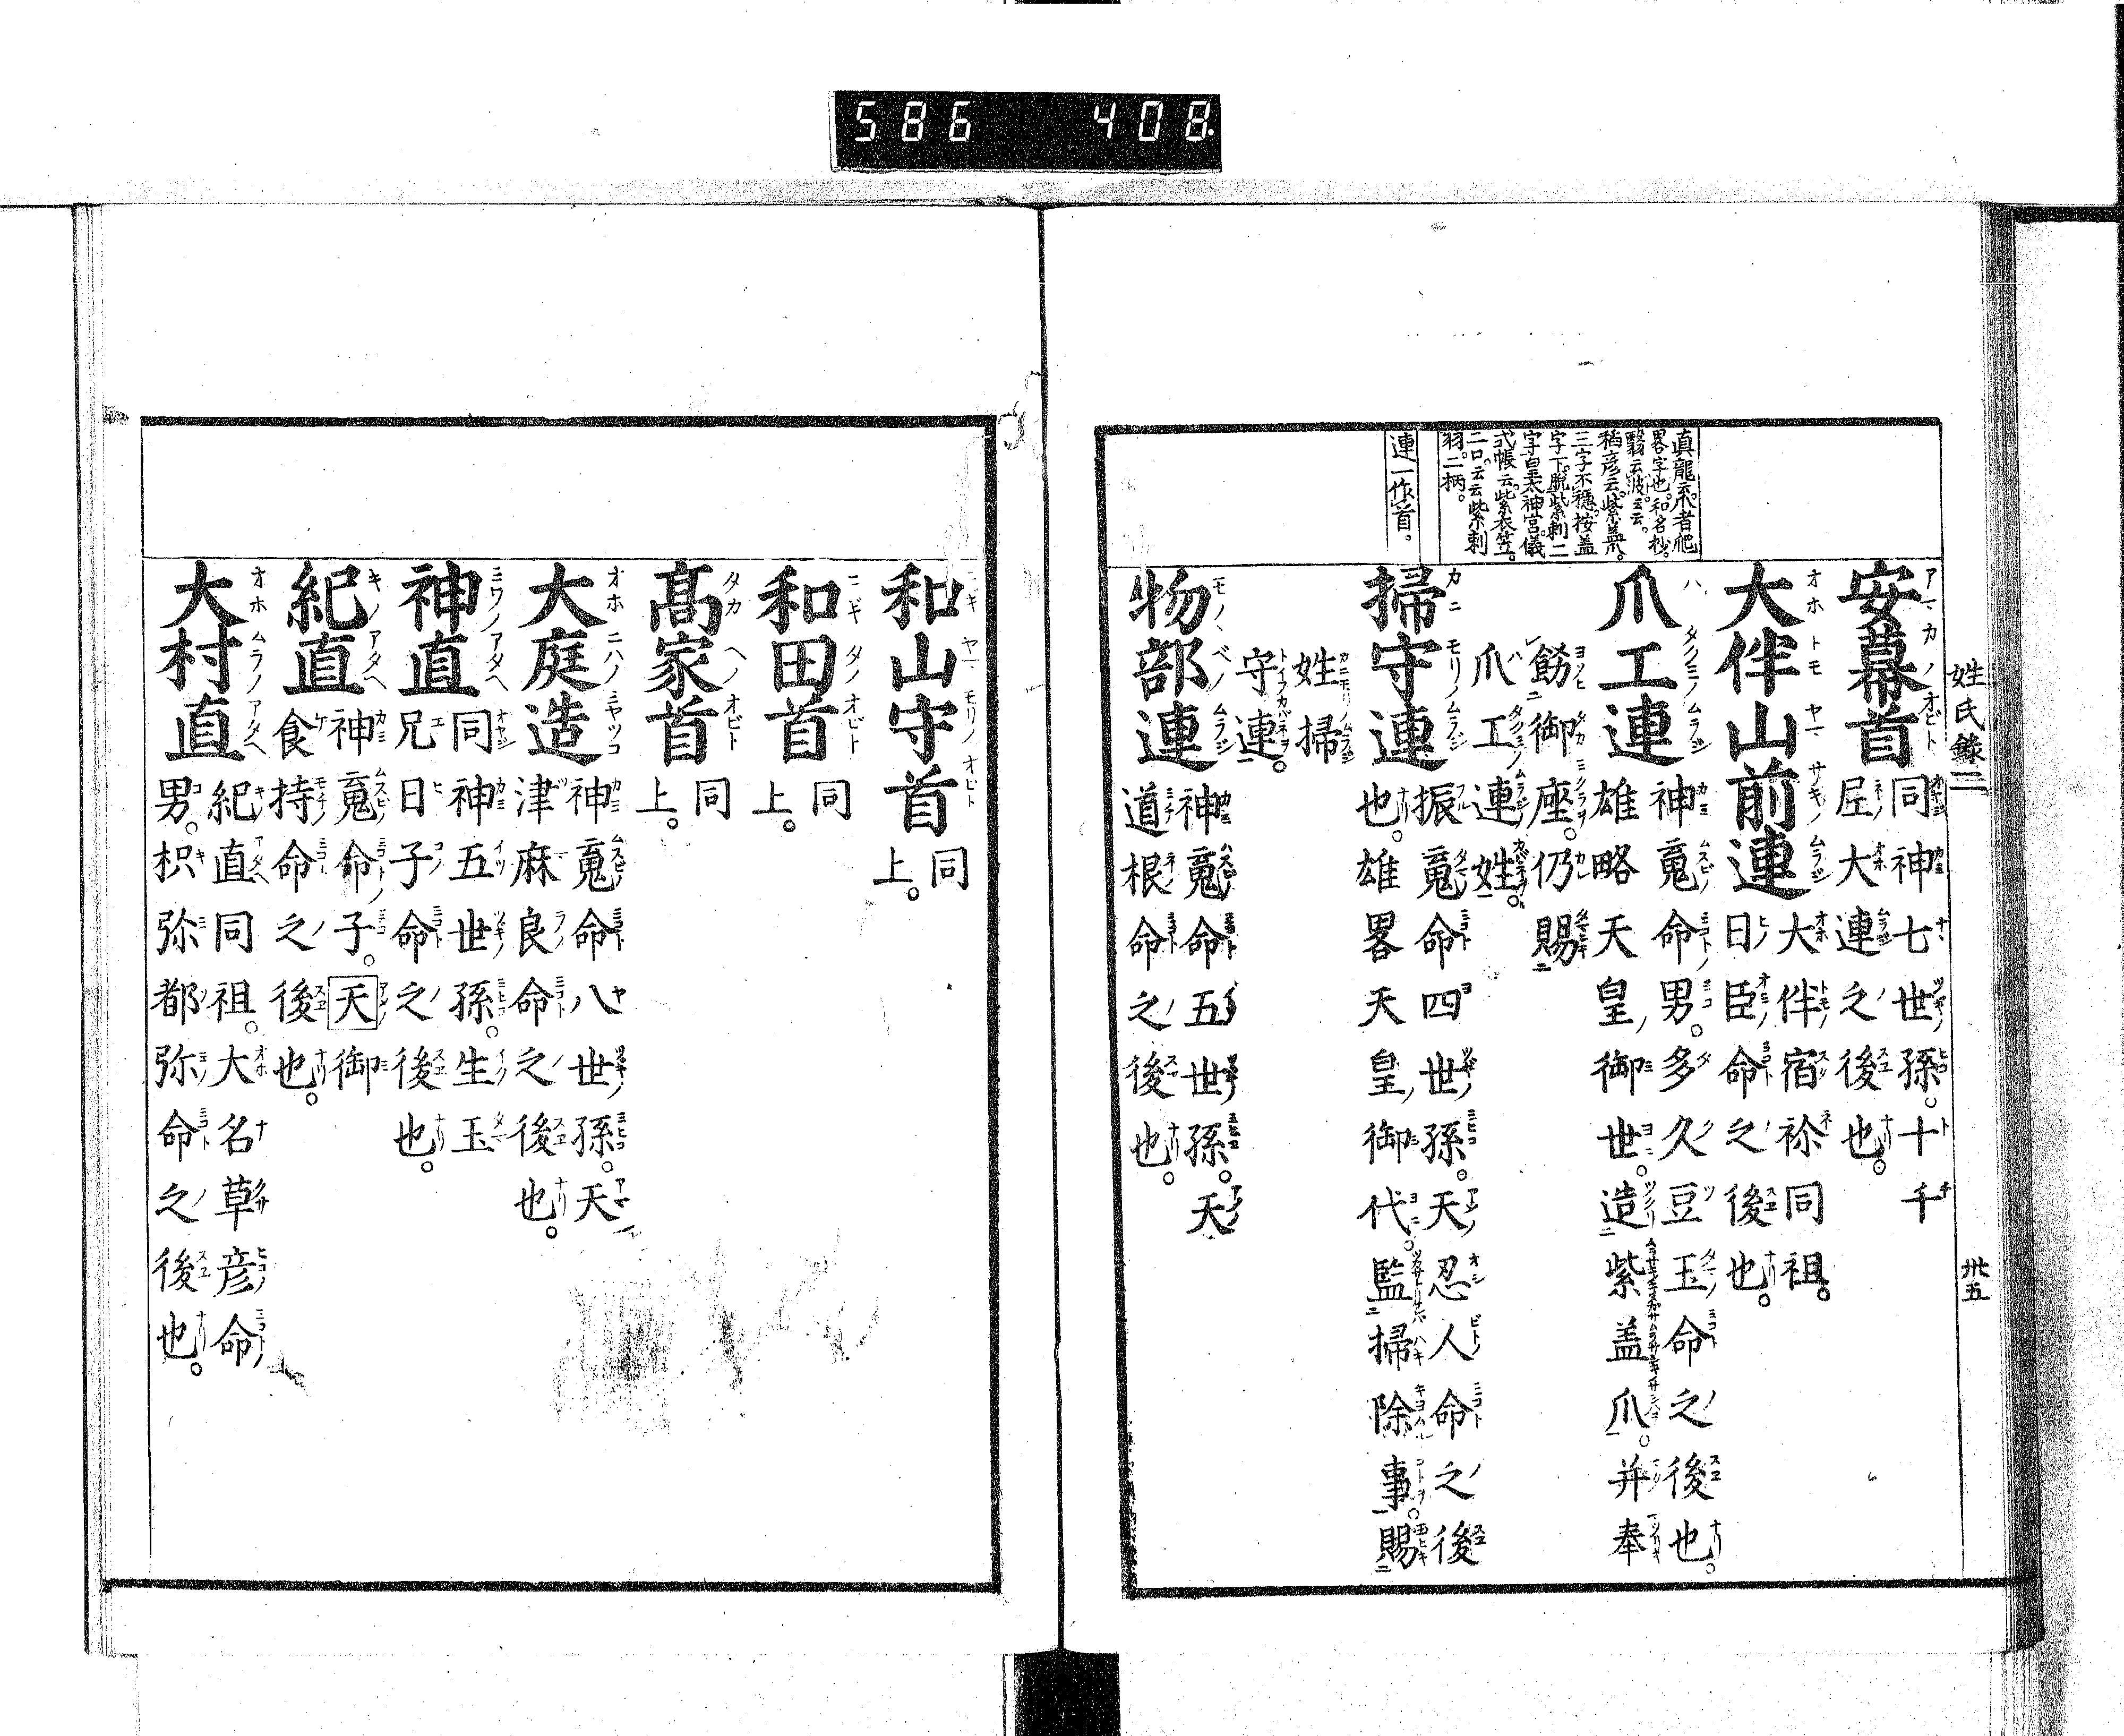 586 408
姓氏録二
卅五
真龍云。爪者爬
畧字也。和名抄。
翳云波。云云。
稻彦云。紫盖爪。
三字不穩。按盖
字下。脱紫刺二
字。皇太神宮儀
式帳云。紫衣笠。
二口。云云紫刺
羽。二柄。
連一作首。
安幕首
同神七世孫。十千
尼大連之後也。
大伴山前連
大伴宿祢同祖。
日臣命之後也。
爪工連
神魂命男。多久豆玉命之後也。
雄略天皇御世。造紫盖爪。并奉
餝御座。仍賜
爪工連姓。
掃守連
振魂命四世孫。天忍人命之後
也。雄畧天皇御代。監掃除事。賜
姓掃
守連。
物部連
神魂命五世孫。天
道根命之後也。
和山守首
同
上。
和田首
同
上。
髙家首
同
上。
大庭造
神魂命八世孫。天
津麻良命之後也。
神直
同神五世孫。生玉
兄日子命之後也。
紀直
神魂命子。天御
食持命之後也。
大村直
紀直同祖。大名草彦命
男。枳弥都弥命之後也。